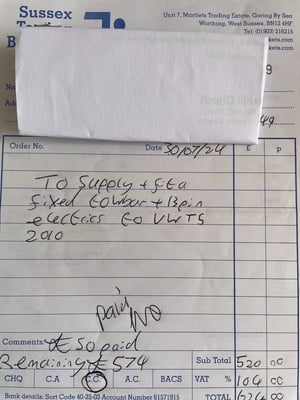 Sussex
Unit 7, Martlets Trading Estate, Goring By Sea
Worthing, West Sussex, BN12 4HF
Tel: (01903) 216215
kets.com
kets.com
9
Na
Ad
49
Order No. Date 30/07/24 £ p
To Supply + fit a
fixed towbar + 13pin
electrics to VW T5
2010
paid
Comments: £50 paid
Remaining £574 Sub Total 520 00
CHQ C.A C.C A.C. BACS VAT % 104 00
Bank details: Sort Code 40-25-03 Account Number 61571915 TOTAL 624 00